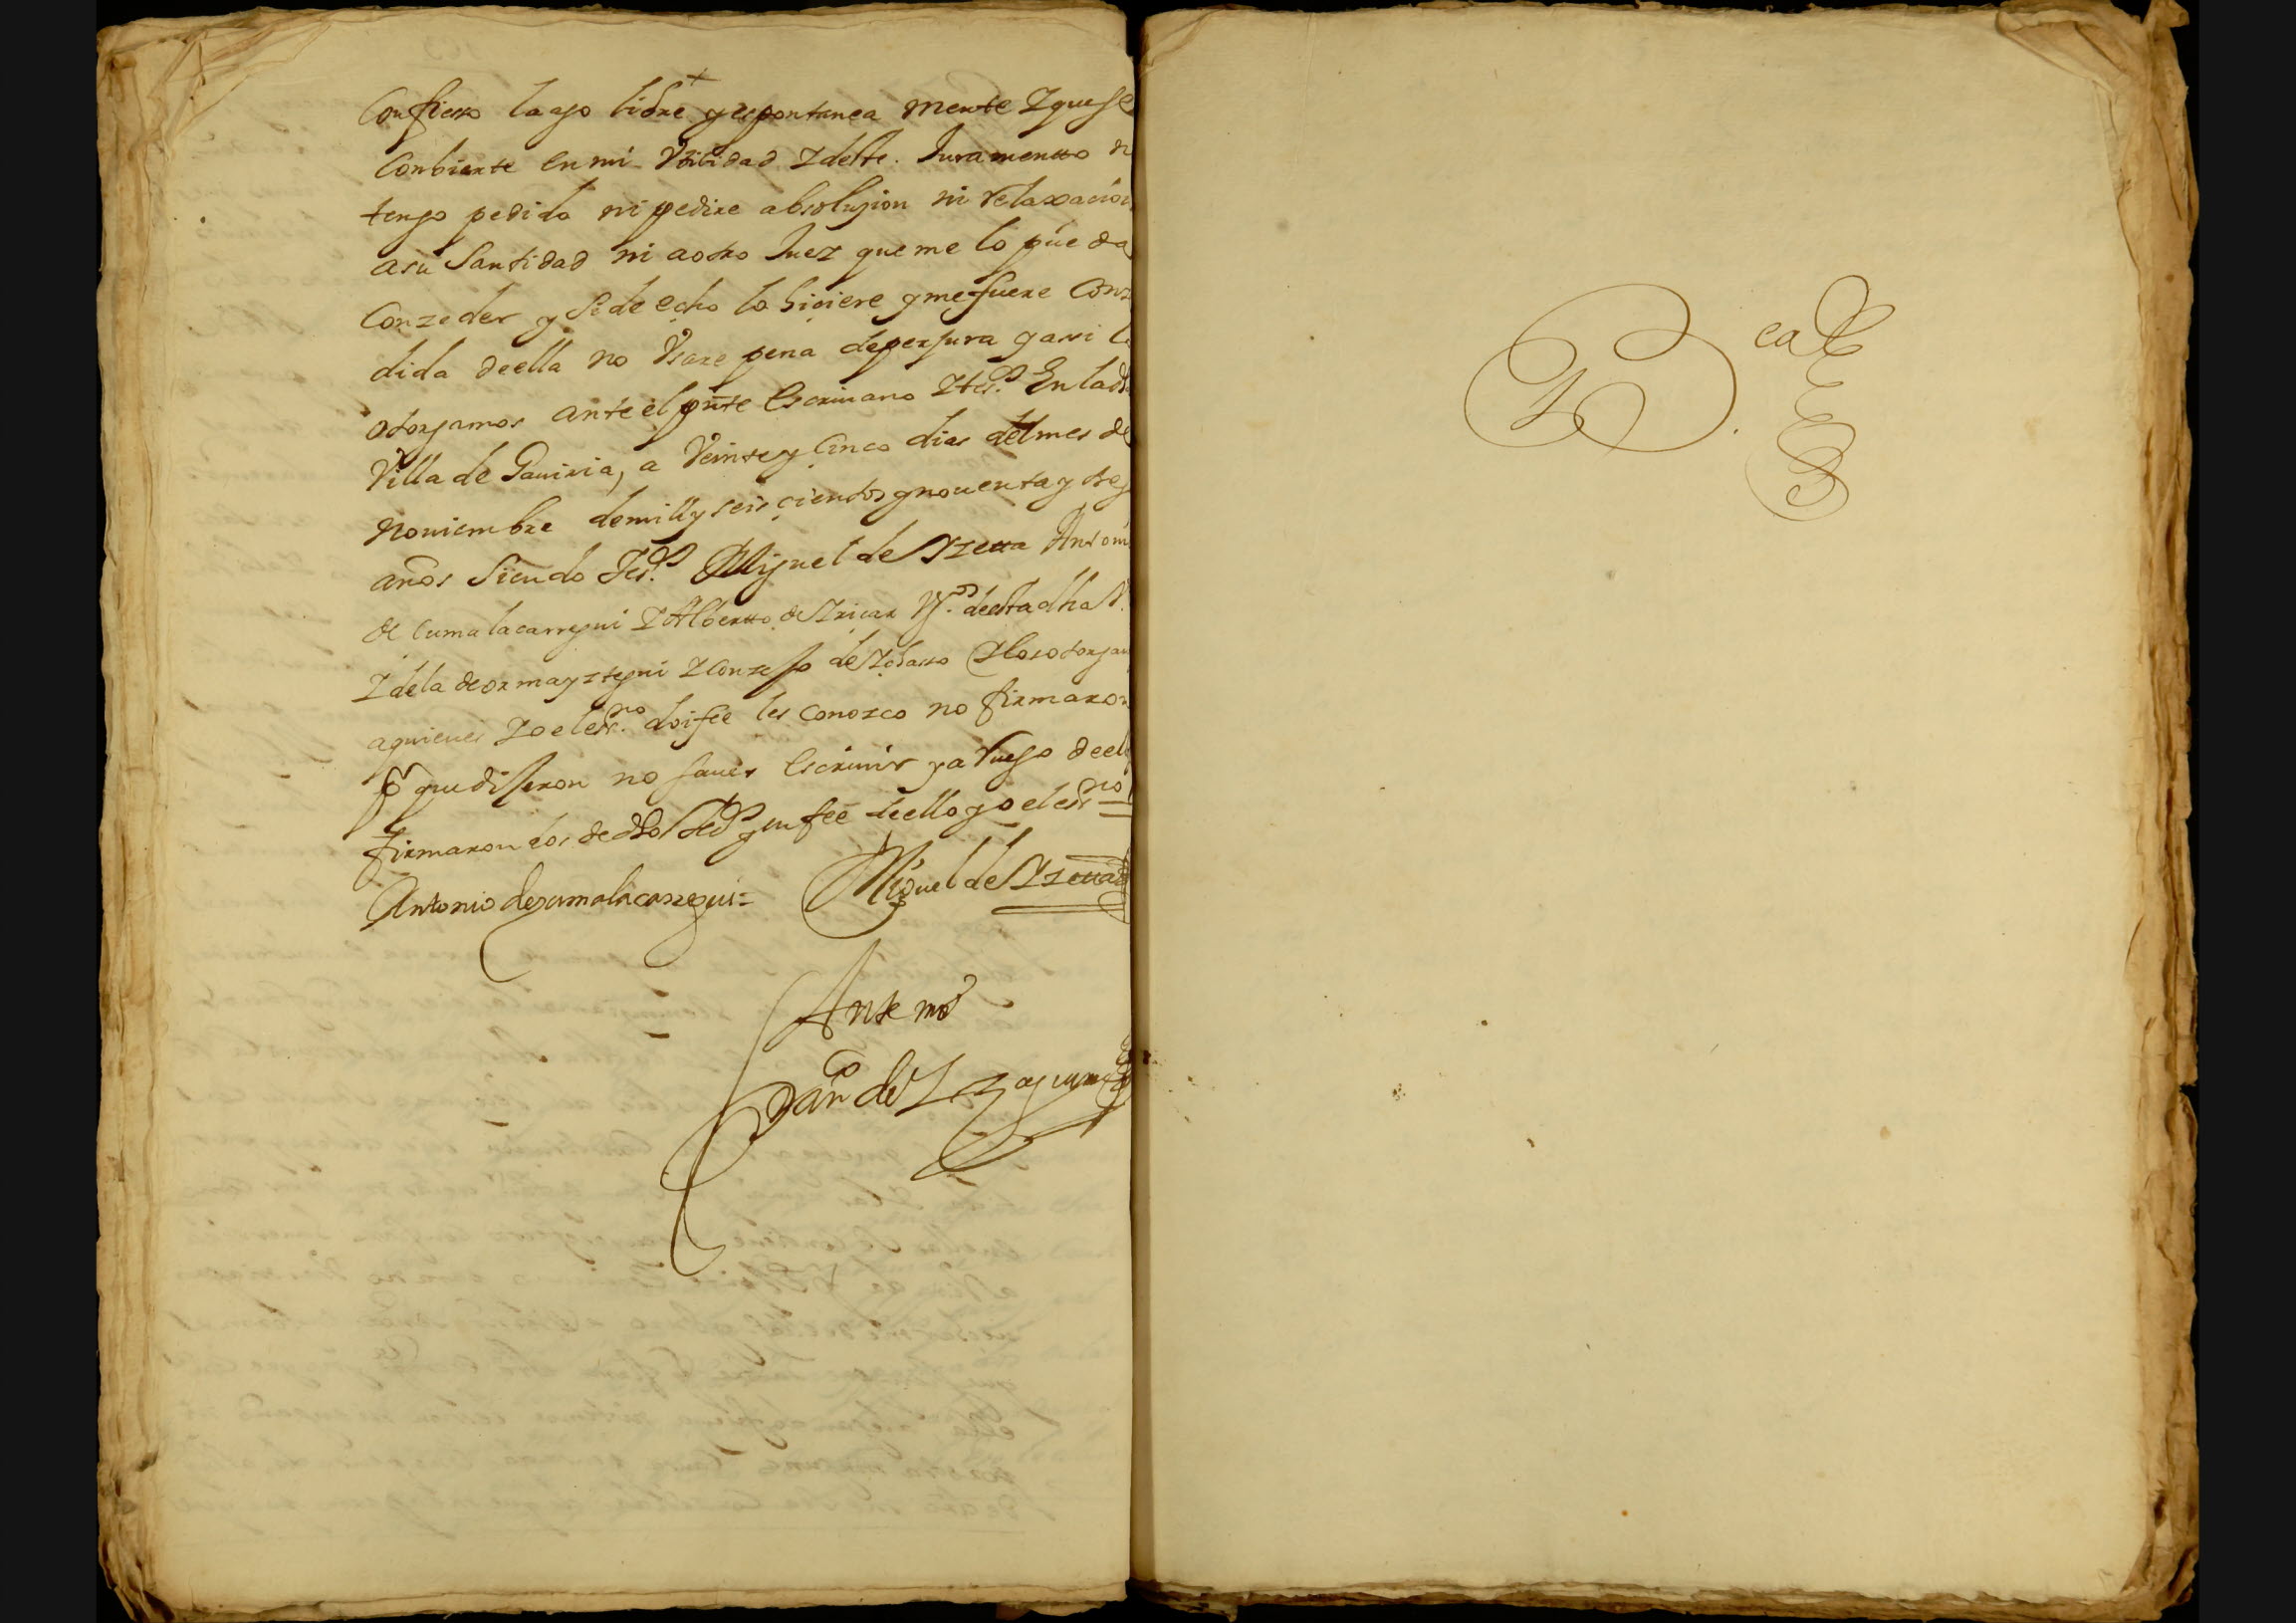 Confiesso la ago libre y espontanea mente y que se
conbierte en mi Vtilidad y deste Juramentto n
tengo pedido ni pedire absolusion ni relaxacion
a su Santidad ni a otro Juez que me lo pueda
conzeder y si de echo la hiciere y me fuere conz
dida de ella no Vsare pena de perjura y assi l
otorgamos ante el pnte Escriuano y tes.os En la dha
Villa de Gauiria, a Veinte y Cinco dias del mes de
Nouiembre de mill y seis çientos y nouenta y tres
años Siendo tes.os Miguel de Yzetta Antoni
de Cumalacarregui y Albertto de Yricar Vz.os de esta dha V.
y de la de ormayztegui y Conzejo de Zobasso los otorgan
a quienes yo el ess.no doi fee les conozco no firmaron
por que dijeron no sauer Escriuir y a ruego de ell
firmaron dos de dhos tes.os y en fee de ello yo el ess.no
Antonio de Zumalacarregui
Miguel de Yzetta
Ante mi